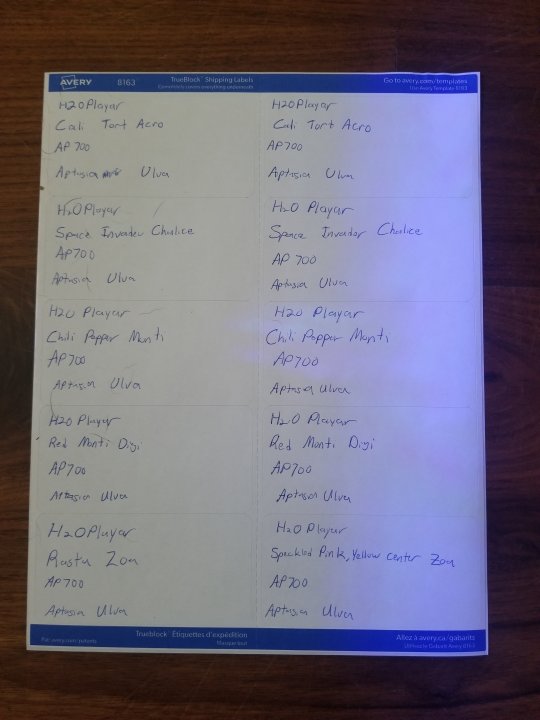 AVERY 8163 TrueBlock Shipping Labels Go to avery.com/templates
Completely covers everything underneath Use Avery Template 8163
H2OPlayar
Cali Tort Acro
AP 700
Aptasia Ulva
H2OPlayar
Cali Tort Acro
AP700
Aptasia Ulva
H2OPlayar
Space Invader Chalice
AP700
Aptasia Ulva
H2O Playar
Space Invador Chalice
AP 700
Aptasia Ulva
H2O Playar
Chili Peppar Monti
AP700
Aptasia Ulva
H2O Playar
Chili Peppar Monti
AP700
Aptasia Ulva
H2O Playar
Red Monti Digi
AP700
Aptasia Ulva
H2O Playar
Red Monti Digi
AP700
Aptasia Ulva
H2OPlayar
Rasta Zoa
AP700
Aptasia Ulva
H2O Playar
Speckled Pink, Yellow center Zoa
AP700
Aptasia Ulva
Trueblock Étiquettes d'expédition Allez à avery.ca/gabarits
Pat: avery.com/patents Masque tout Utilisez le Gabarit Avery 8163